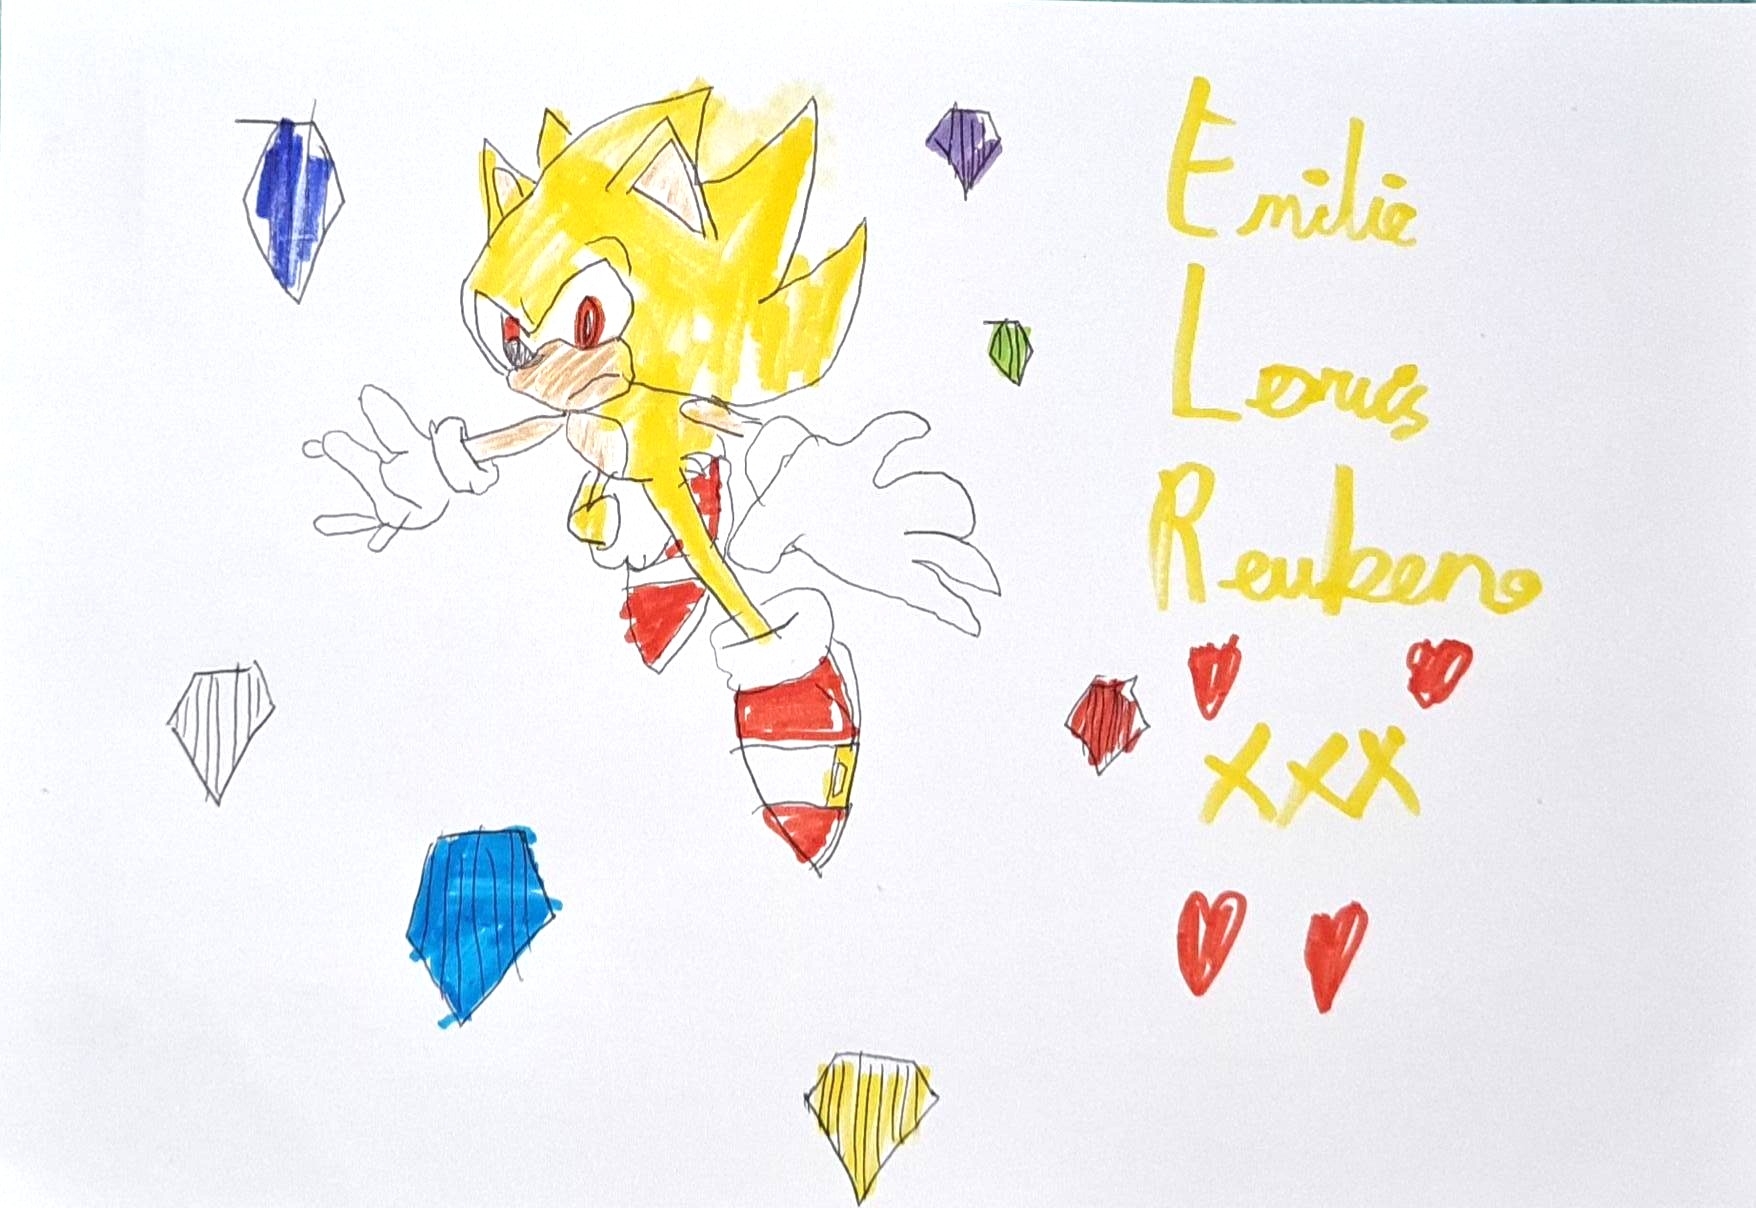 Emilie
Loruis
Reuben
xxx